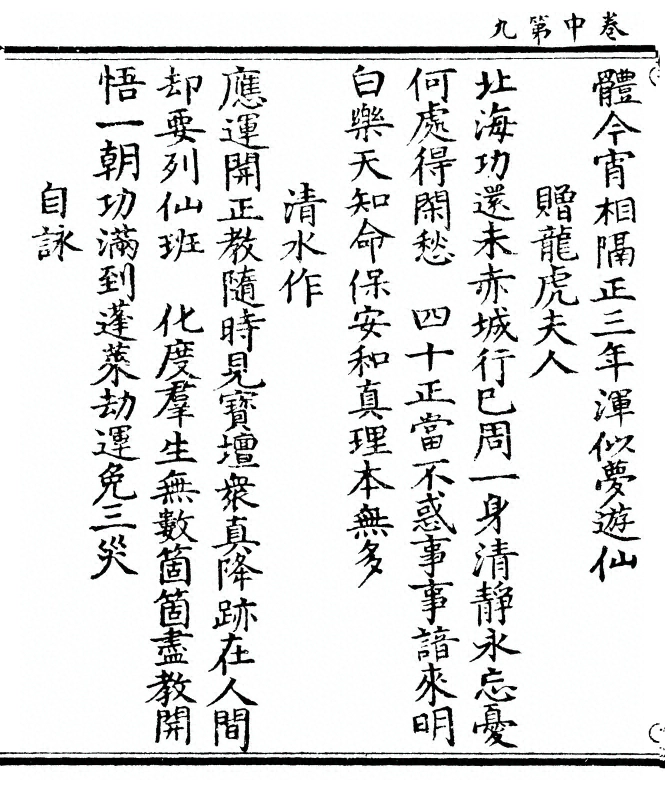 卷中第九
體今宵相隔正三年渾似夢遊仙
贈龍虎夫人
北海功還未赤城行已周一身清靜永忘憂
何處得閑愁　四十正當不惑事事諳來明
白樂天知命保安和真理本無多
清水作
應運開正教隨時見寶壇衆真降跡在人間
却要列仙班　化度羣生無數箇箇盡教開
悟一朝功滿到蓬萊劫運免三災
自詠